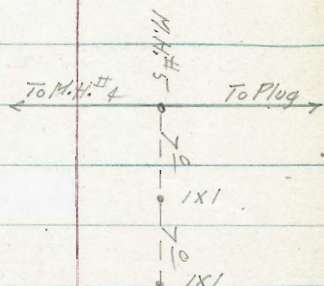 M.H.#5
To M.H.#4 To Plug
70
1X1
70
1X1